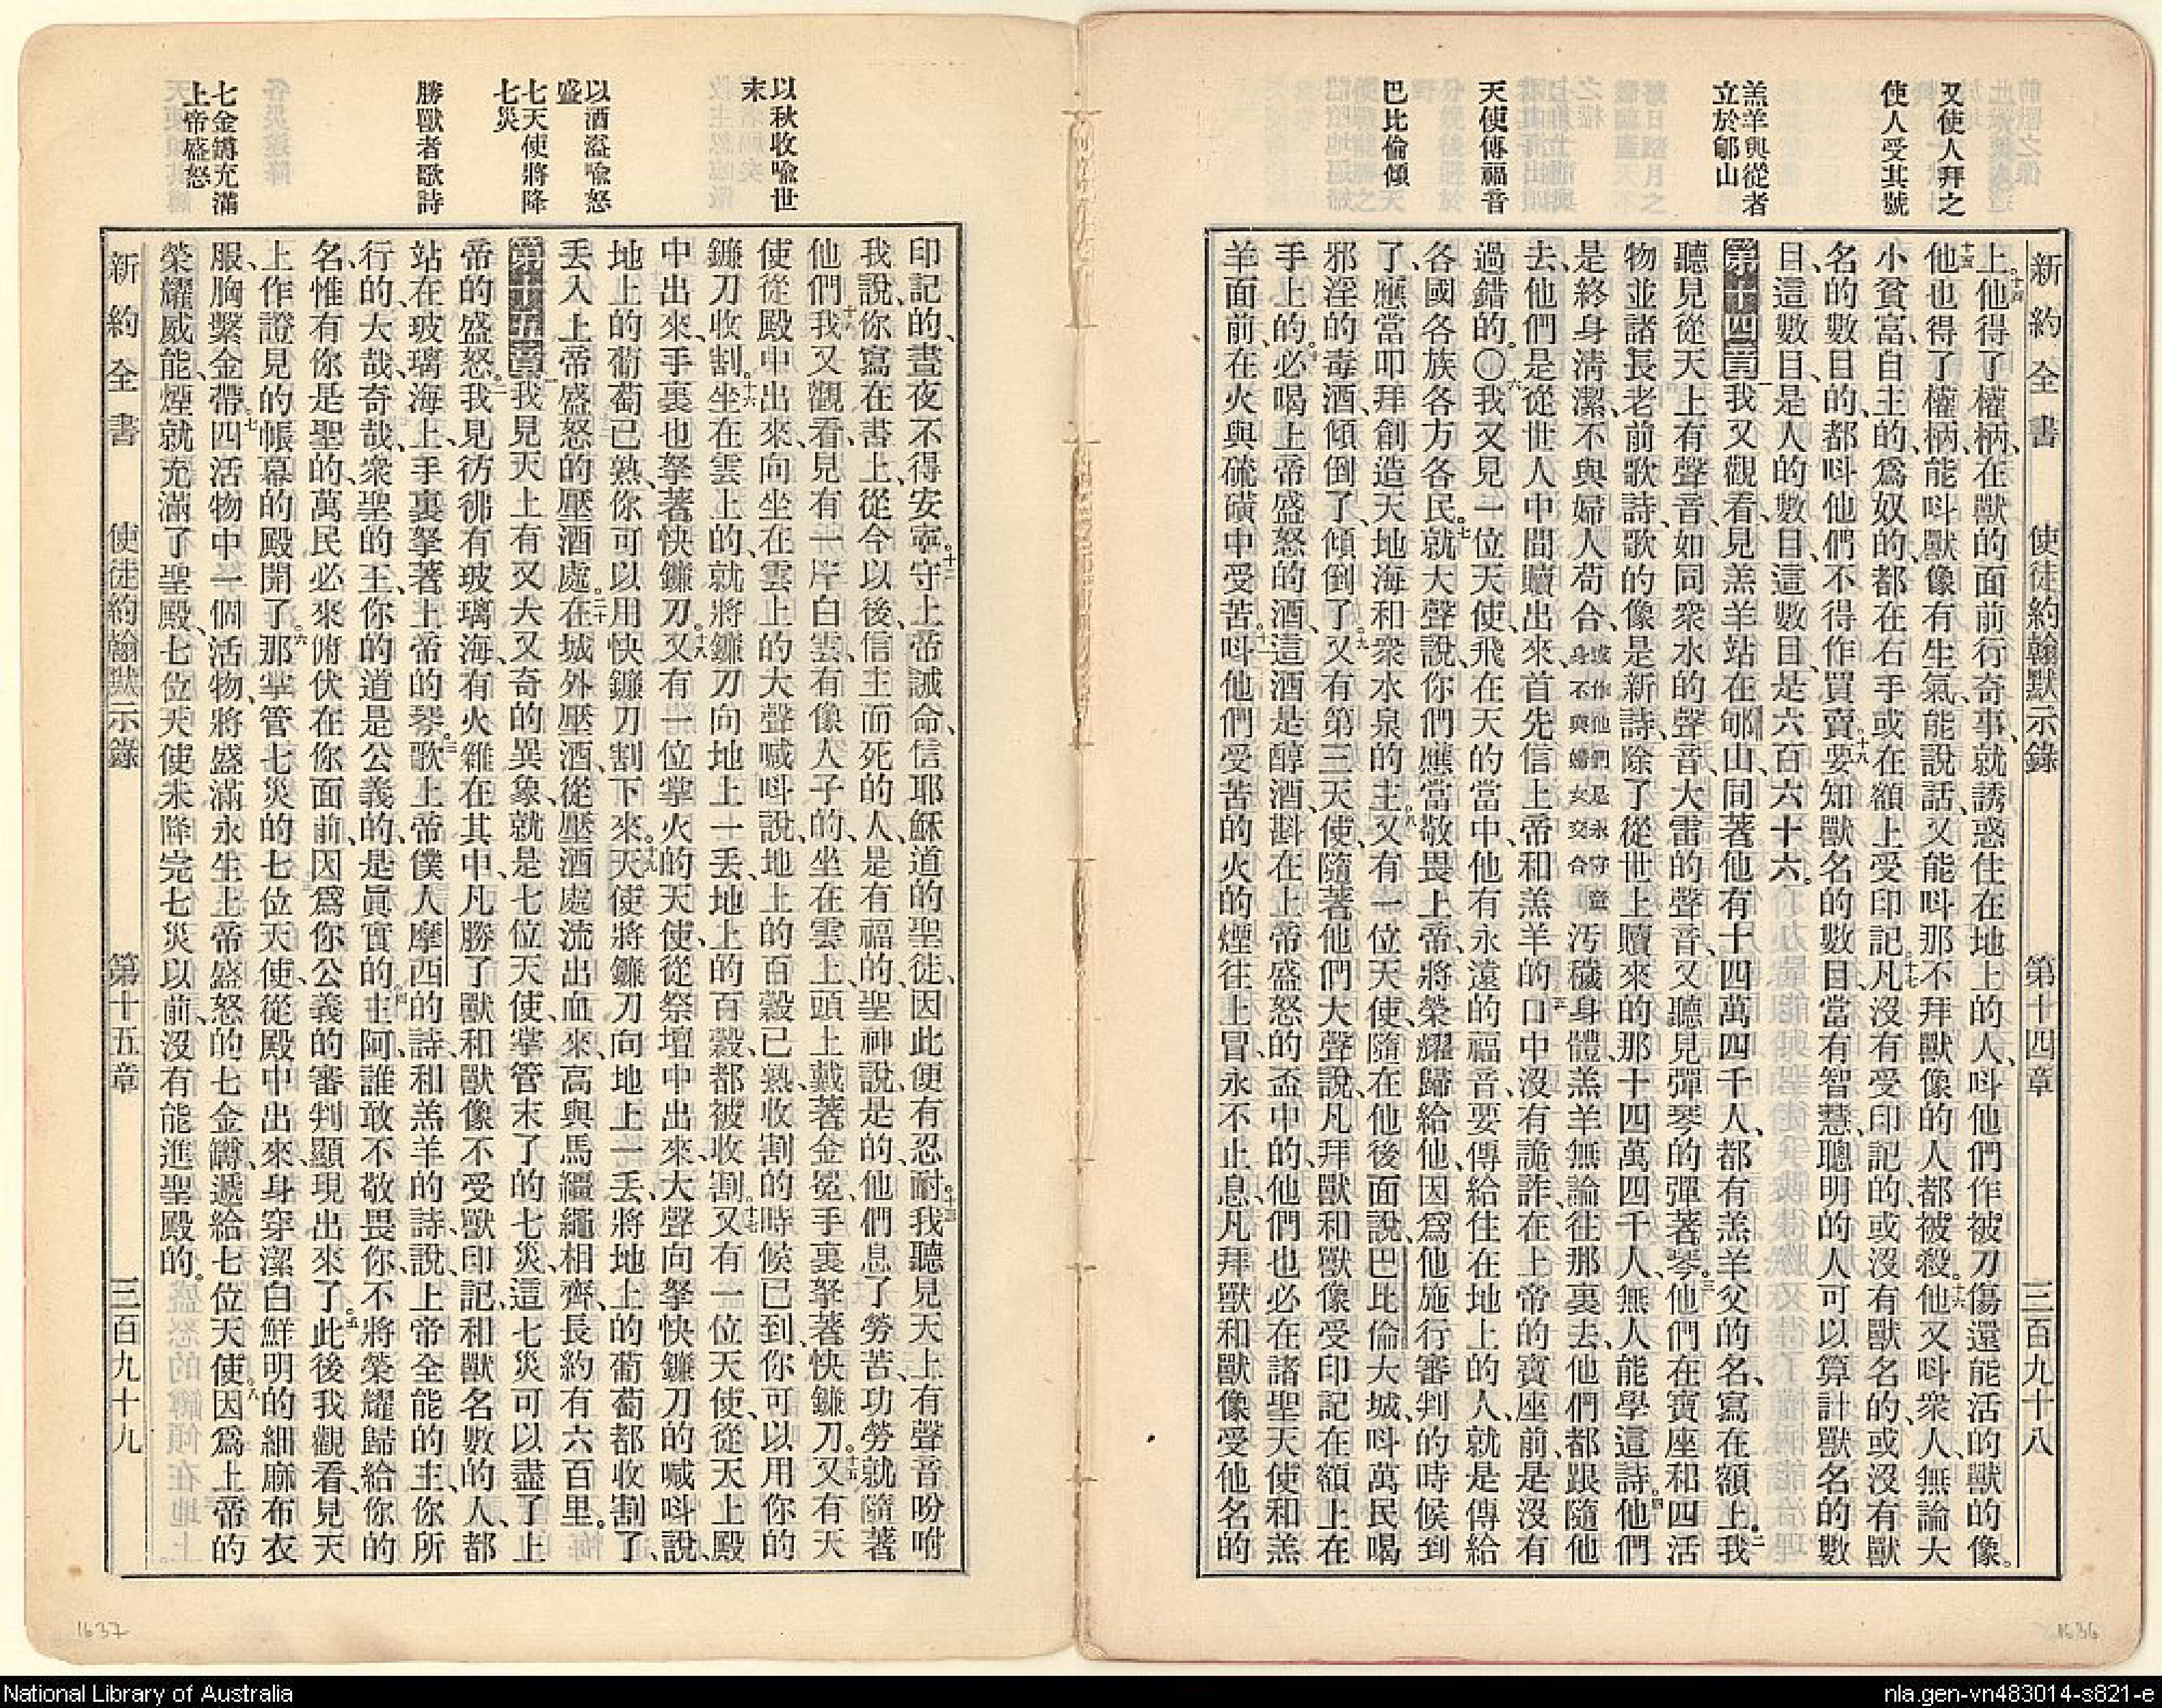 又使人拜之
使人受其號
羔羊與從者
立於郇山
天使傳福音
巴比倫傾
新約全書 使徒約翰默示錄 第十四章 三百九十八
上、十四他得了權柄、在獸的面前行奇事、就誘惑住在地上的人、呌他們作被刀傷還能活的獸的像。
十五他也得了權柄、能呌獸像有生氣、能說話、又能呌那不拜獸像的人都被殺。十六他又呌衆人、無論大
小貧富、自主的、爲奴的、都在右手或在額上受印記。十七凡沒有受印記的、或沒有獸名的、或沒有獸
名的數目的、都呌他們不得作買賣。十八要知獸名的數目、當有智慧、聰明的人可以算計獸名的數
目、這數目、是人的數目、這數目、是六百六十六。
第十四章 一我又觀看、見羔羊站在郇山、同著他有十四萬四千人、都有羔羊父的名、寫在額上。二我
聽見從天上有聲音、如同衆水的聲音、大雷的聲音、又聽見彈琴的彈著琴。三他們在寶座和四活
物並諸長老前歌詩、歌的像是新詩、除了從世上贖來的那十四萬四千人、無人能學這詩。四他們
是終身清潔、不與婦人苟合、或作他們是永守童身不與婦女交合汚穢身體、羔羊無論往那裏去、他們都跟隨他
去、他們是從世人中間贖出來、首先信上帝和羔羊的。五口中沒有詭詐、在上帝的寶座前、是沒有
過錯的。〇六我又見一位天使、飛在天的當中、他有永遠的福音、要傳給住在地上的人、就是傳給
各國各族各方各民。七就大聲說、你們應當敬畏上帝、將榮耀歸給他、因爲他施行審判的時候到
了、應當叩拜創造天地海和衆水泉的主。八又有一位天使、隨在他後面說、巴比倫大城、呌萬民喝
邪淫的毒酒、傾倒了、傾倒了。九又有第三天使、隨著他們大聲說、凡拜獸和獸像、受印記在額上在
手上的、十必喝上帝盛怒的酒、這酒是醇酒、斟在上帝盛怒的盃中的、他們也必在諸聖天使和羔
羊面前、在火與硫磺中受苦。十一呌他們受苦的火的煙往上冒、永不止息、凡拜獸和獸像、受他名的
以秋收喩世
末
以酒溢喩怒
盛
七天使將降
七災
勝獸者歌詩
七金罇充滿
上帝盛怒
印記的、晝夜不得安寧。十二守上帝誡命、信耶穌道的聖徒、因此便有忍耐。十三我聽見天上有聲音吩咐
我說、你寫在書上、從今以後、信主而死的人、是有福的、聖神說、是的、他們息了勞苦、功勞就隨著
他們。十四我又觀看、見有一片白雲、有像人子的、坐在雲上、頭上戴著金冕、手裏拏著快鐮刀。十五又有天
使從殿中出來、向坐在雲上的大聲喊呌說、地上的百穀已熟、收割的時候已到、你可以用你的
鐮刀收割。十六坐在雲上的、就將鐮刀向地上一丟、地上的百穀、都被收割。十七又有一位天使、從天上殿
中出來、手裏也拏著快鐮刀。十八又有一位掌火的天使、從祭壇中出來、大聲向拏快鐮刀的喊呌說、
地上的葡萄已熟、你可以用快鐮刀割下來。十九天使將鐮刀向地上一丟、將地上的葡萄都收割了、
丟入上帝盛怒的壓酒處。二十在城外壓酒、從壓酒處流出血來、高與馬韁繩相齊、長約有六百里。
第十五章 一我見天上有又大又奇的異象、就是七位天使、掌管末了的七災、這七災可以盡了上
帝的盛怒。二我見彷彿有玻璃海、有火雜在其中、凡勝了獸和獸像、不受獸印記、和獸名數的人、都
站在玻璃海上、手裏拏著上帝的琴。三歌上帝僕人摩西的詩、和羔羊的詩說、上帝全能的主、你所
行的、大哉奇哉、衆聖的王、你的道是公義的、是眞實的。四主阿、誰敢不敬畏你、不將榮耀歸給你的
名、惟有你是聖的、萬民必來俯伏在你面前、因爲你公義的審判顯現出來了。五此後我觀看、見天
上作證見的帳幕的殿開了。六那掌管七災的七位天使、從殿中出來、身穿潔白鮮明的細麻布衣
服、胸繫金帶。七四活物中一個活物、將盛滿永生上帝盛怒的七金罇、遞給七位天使。八因爲上帝的
榮耀威能、煙就充滿了聖殿、七位天使未降完七災以前、沒有能進聖殿的。
新約全書 使徒約翰默示錄 第十五章 三百九十九
1637
1636
National Library of Australia
nla.gen-vn483014-s821-e